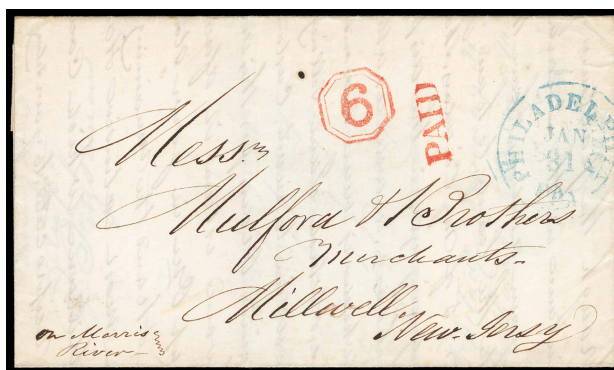 6
PAID
PHILADEL
JAN
31
Messrs
Mulford & Brothers
Merchants-
Millwell.
New-Jersy
on Morris
River-